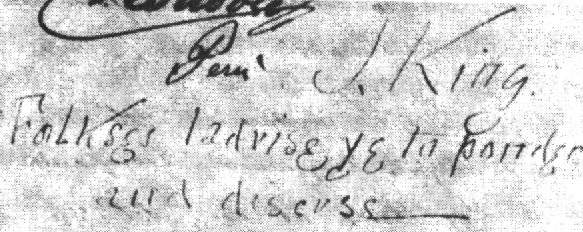 Perú J. King.
Folkses I advise ye to ponder
and discuss